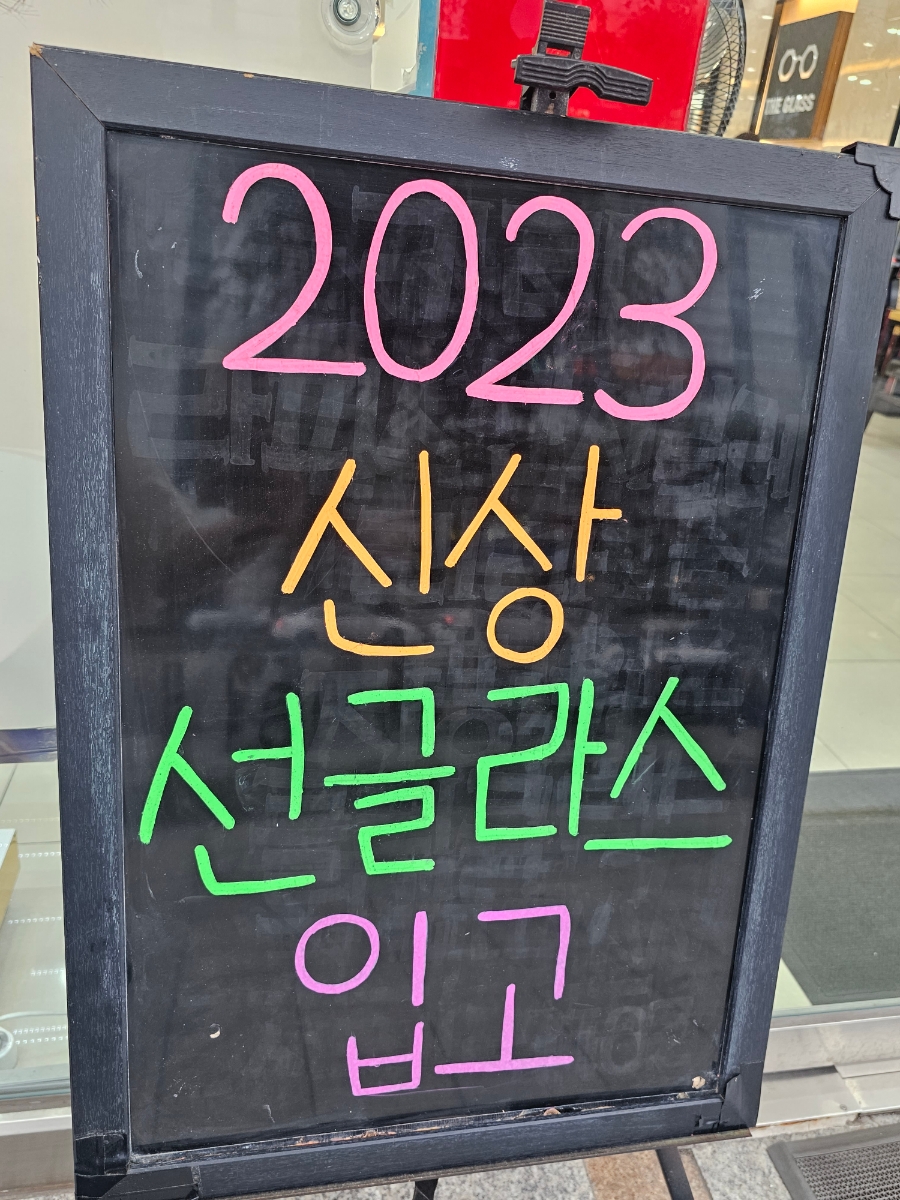 THE GLASS
2023
신상
선글라스
입고